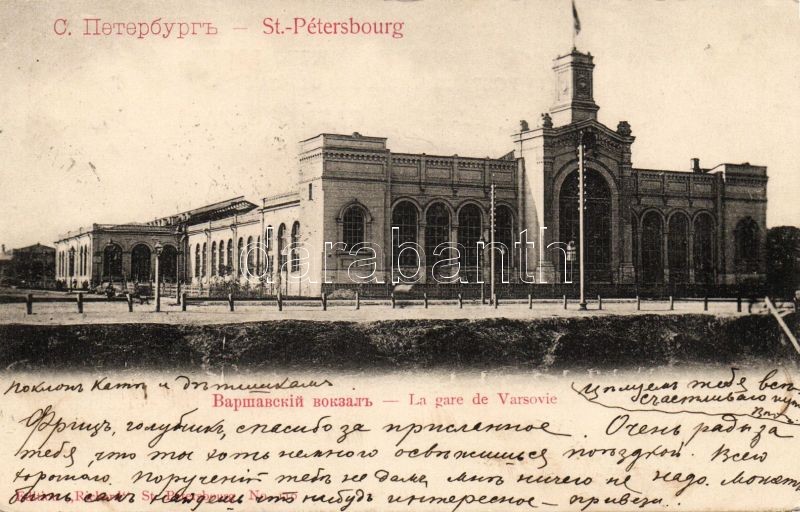 С. Петербургъ – St.-Pétersbourg
darabanth
Поклонъ Катѣ и дѣтишкамъ
Варшавскій вокзалъ – La gare de Varsovie
Цѣлуемъ тебя всѣ
счастливаго пути
Фрицъ, голубчикъ, спасибо за присланное. Очень рады за
тебя, что ты хоть немного освѣжишься поѣздкой. Всего
хорошаго. Порученій тебѣ не даемъ, мнѣ ничего не надо. Можетъ
быть самъ найдешь что нибудь интересное – привези.
Edition „Richard“ St. Petersbourg No.